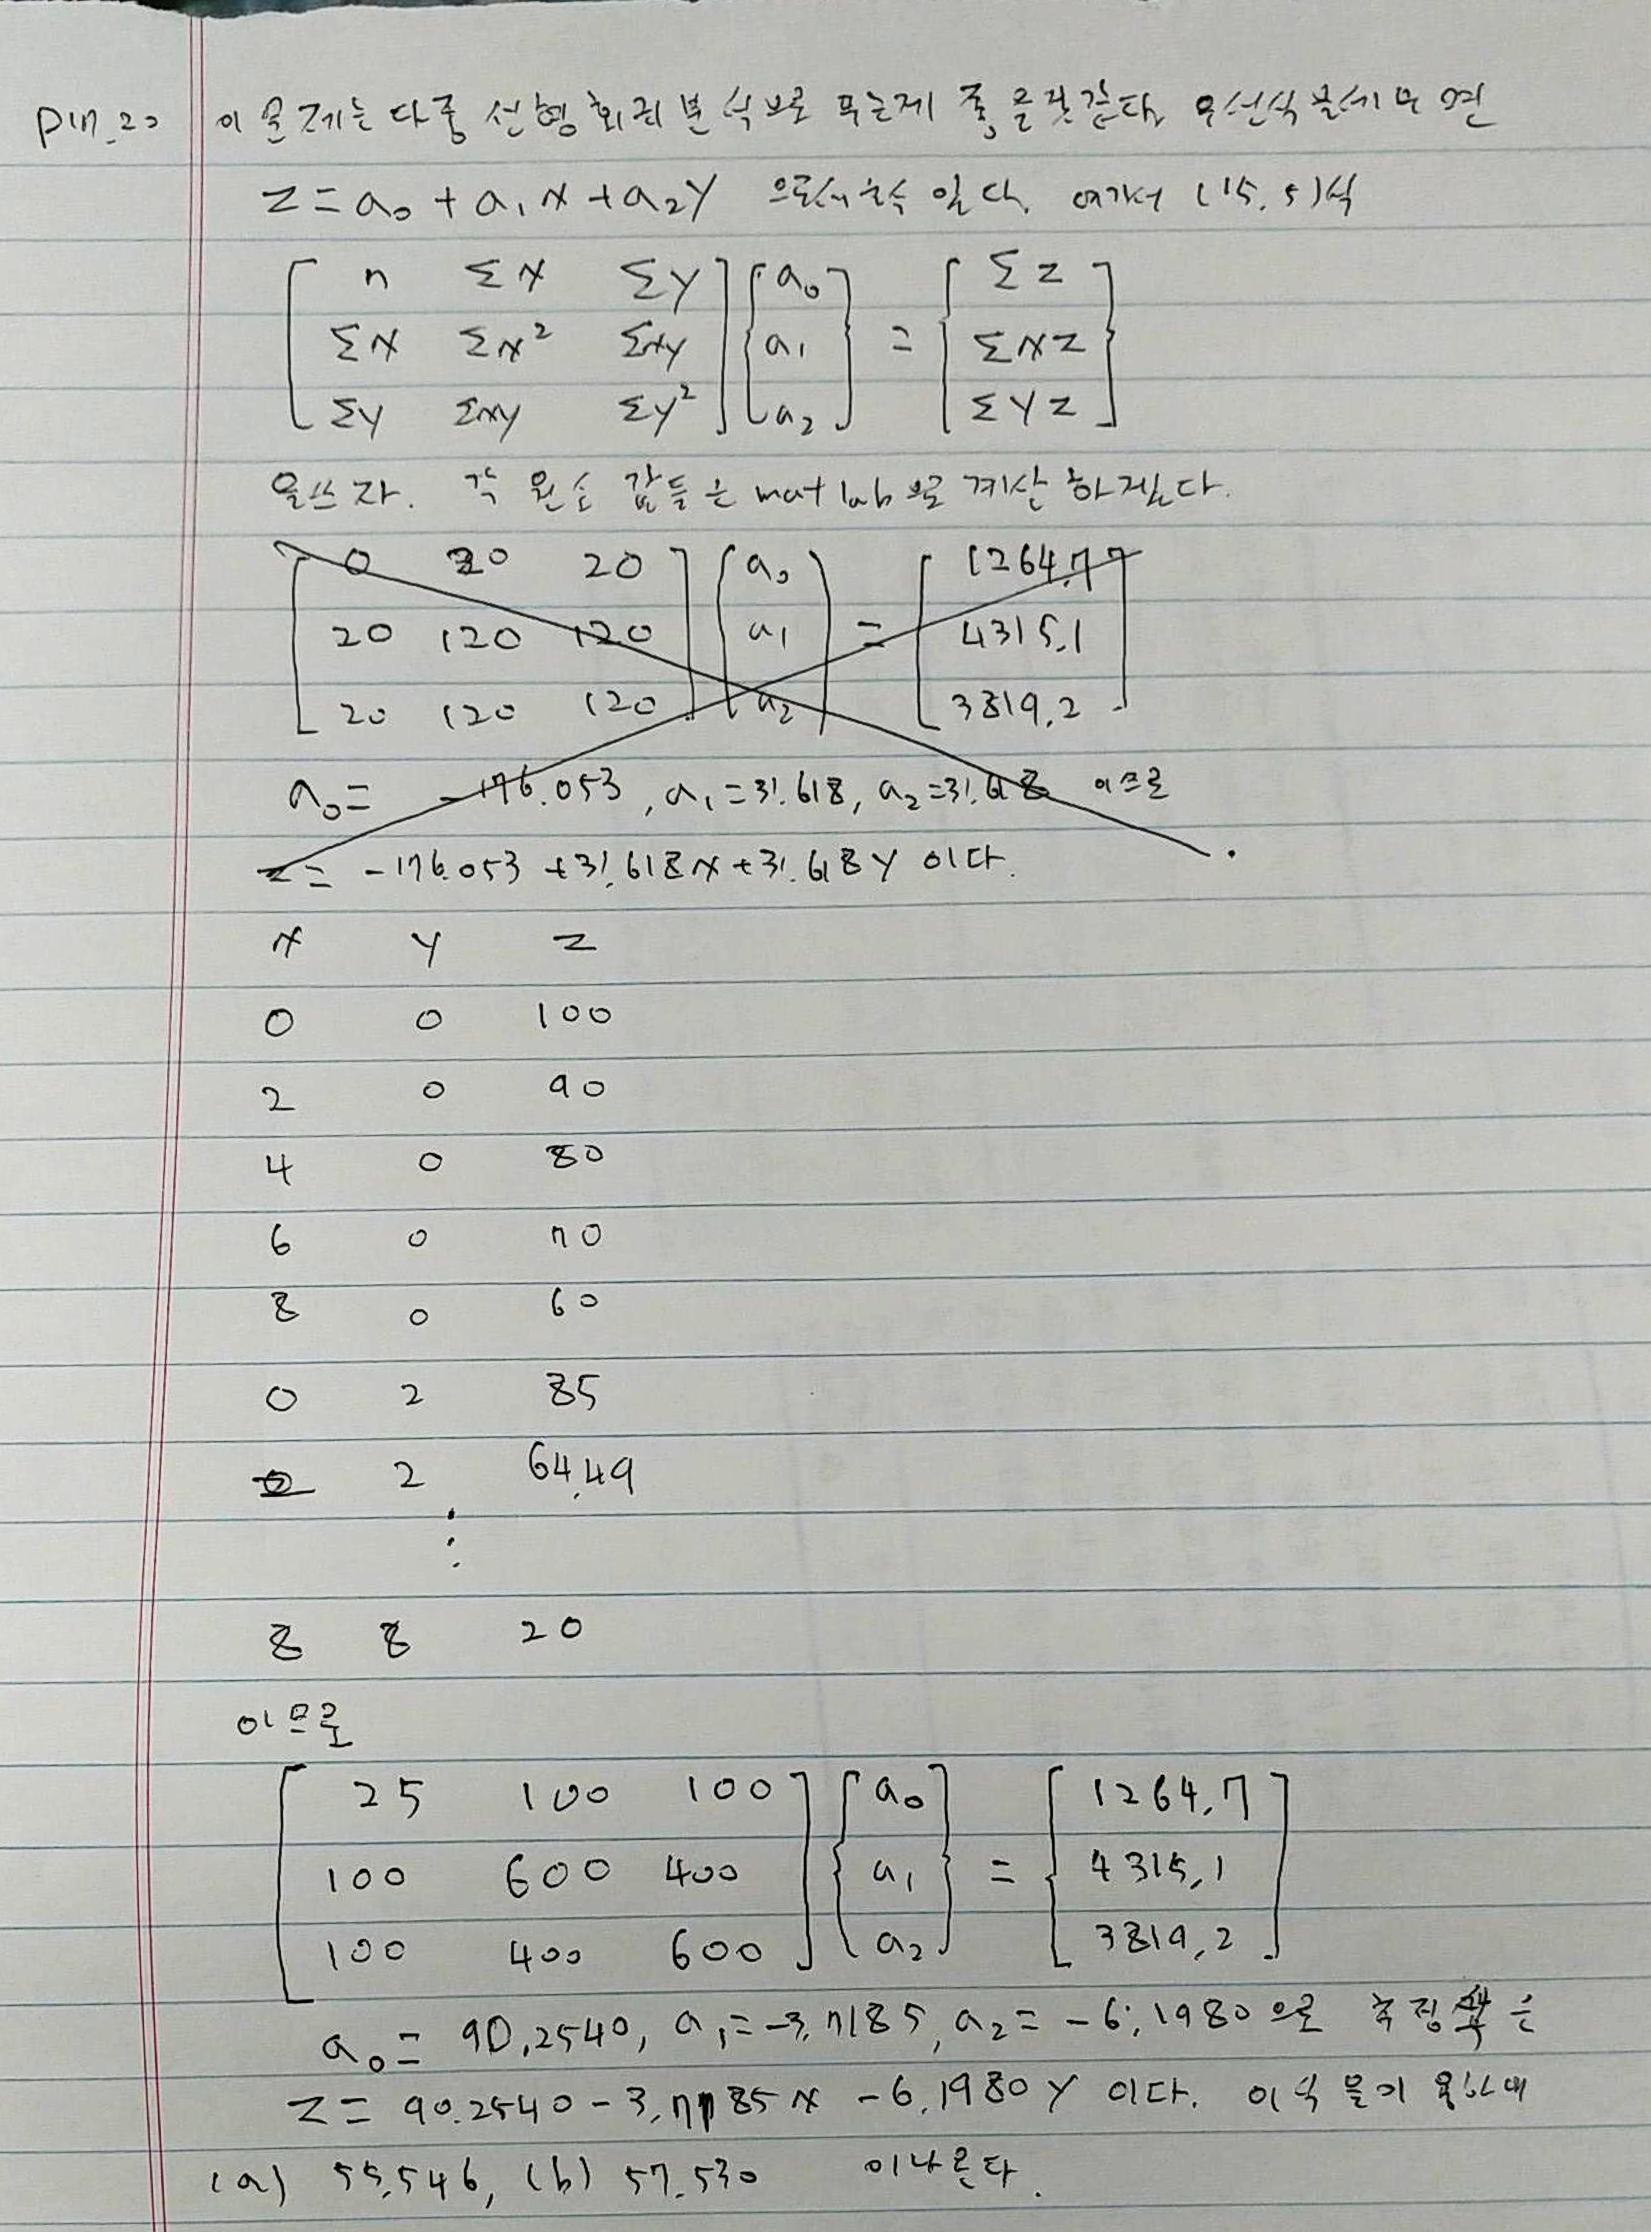 P17.20 이 문제는 다중 선형회귀분석으로 푸는게 좋을것같다. 우선식을세우면
z = a₀ + a₁x + a₂y 으로써 일다. 여기서 (15.5)식
[ n Σx Σy ] { a₀ } = { Σz }
[ Σx Σx² Σxy ] { a₁ } = { Σxz }
[ Σy Σxy Σy² ] { a₂ } = { Σyz }
을쓰자. 각 원소 값들은 matlab으로 계산 하겠다.
[ 0 20 20 ] { a₀ } = [ 1264.7 ]
[ 20 120 120 ] { a₁ } = [ 4315.1 ]
[ 20 120 120 ] { a₂ } = [ 3819.2 ]
a₀ = -176.053, a₁ = 31.618, a₂ = 31.618 이므로
z = -176.053 + 31.618x + 31.618y 이다.
x y z
0 0 100
2 0 90
4 0 80
6 0 70
8 0 60
0 2 85
2 2 64.49
⋮
8 8 20
이므로
[ 25 100 100 ] { a₀ } = { 1264.7 }
[ 100 600 400 ] { a₁ } = { 4315.1 }
[ 100 400 600 ] { a₂ } = { 3819.2 }
a₀ = 90.2540, a₁ = -3.7185, a₂ = -6.1980으로 추정은
z = 90.2540 - 3.7185x - 6.1980y 이다. 이식을
(a) 55.546, (b) 57.530 이나온다.